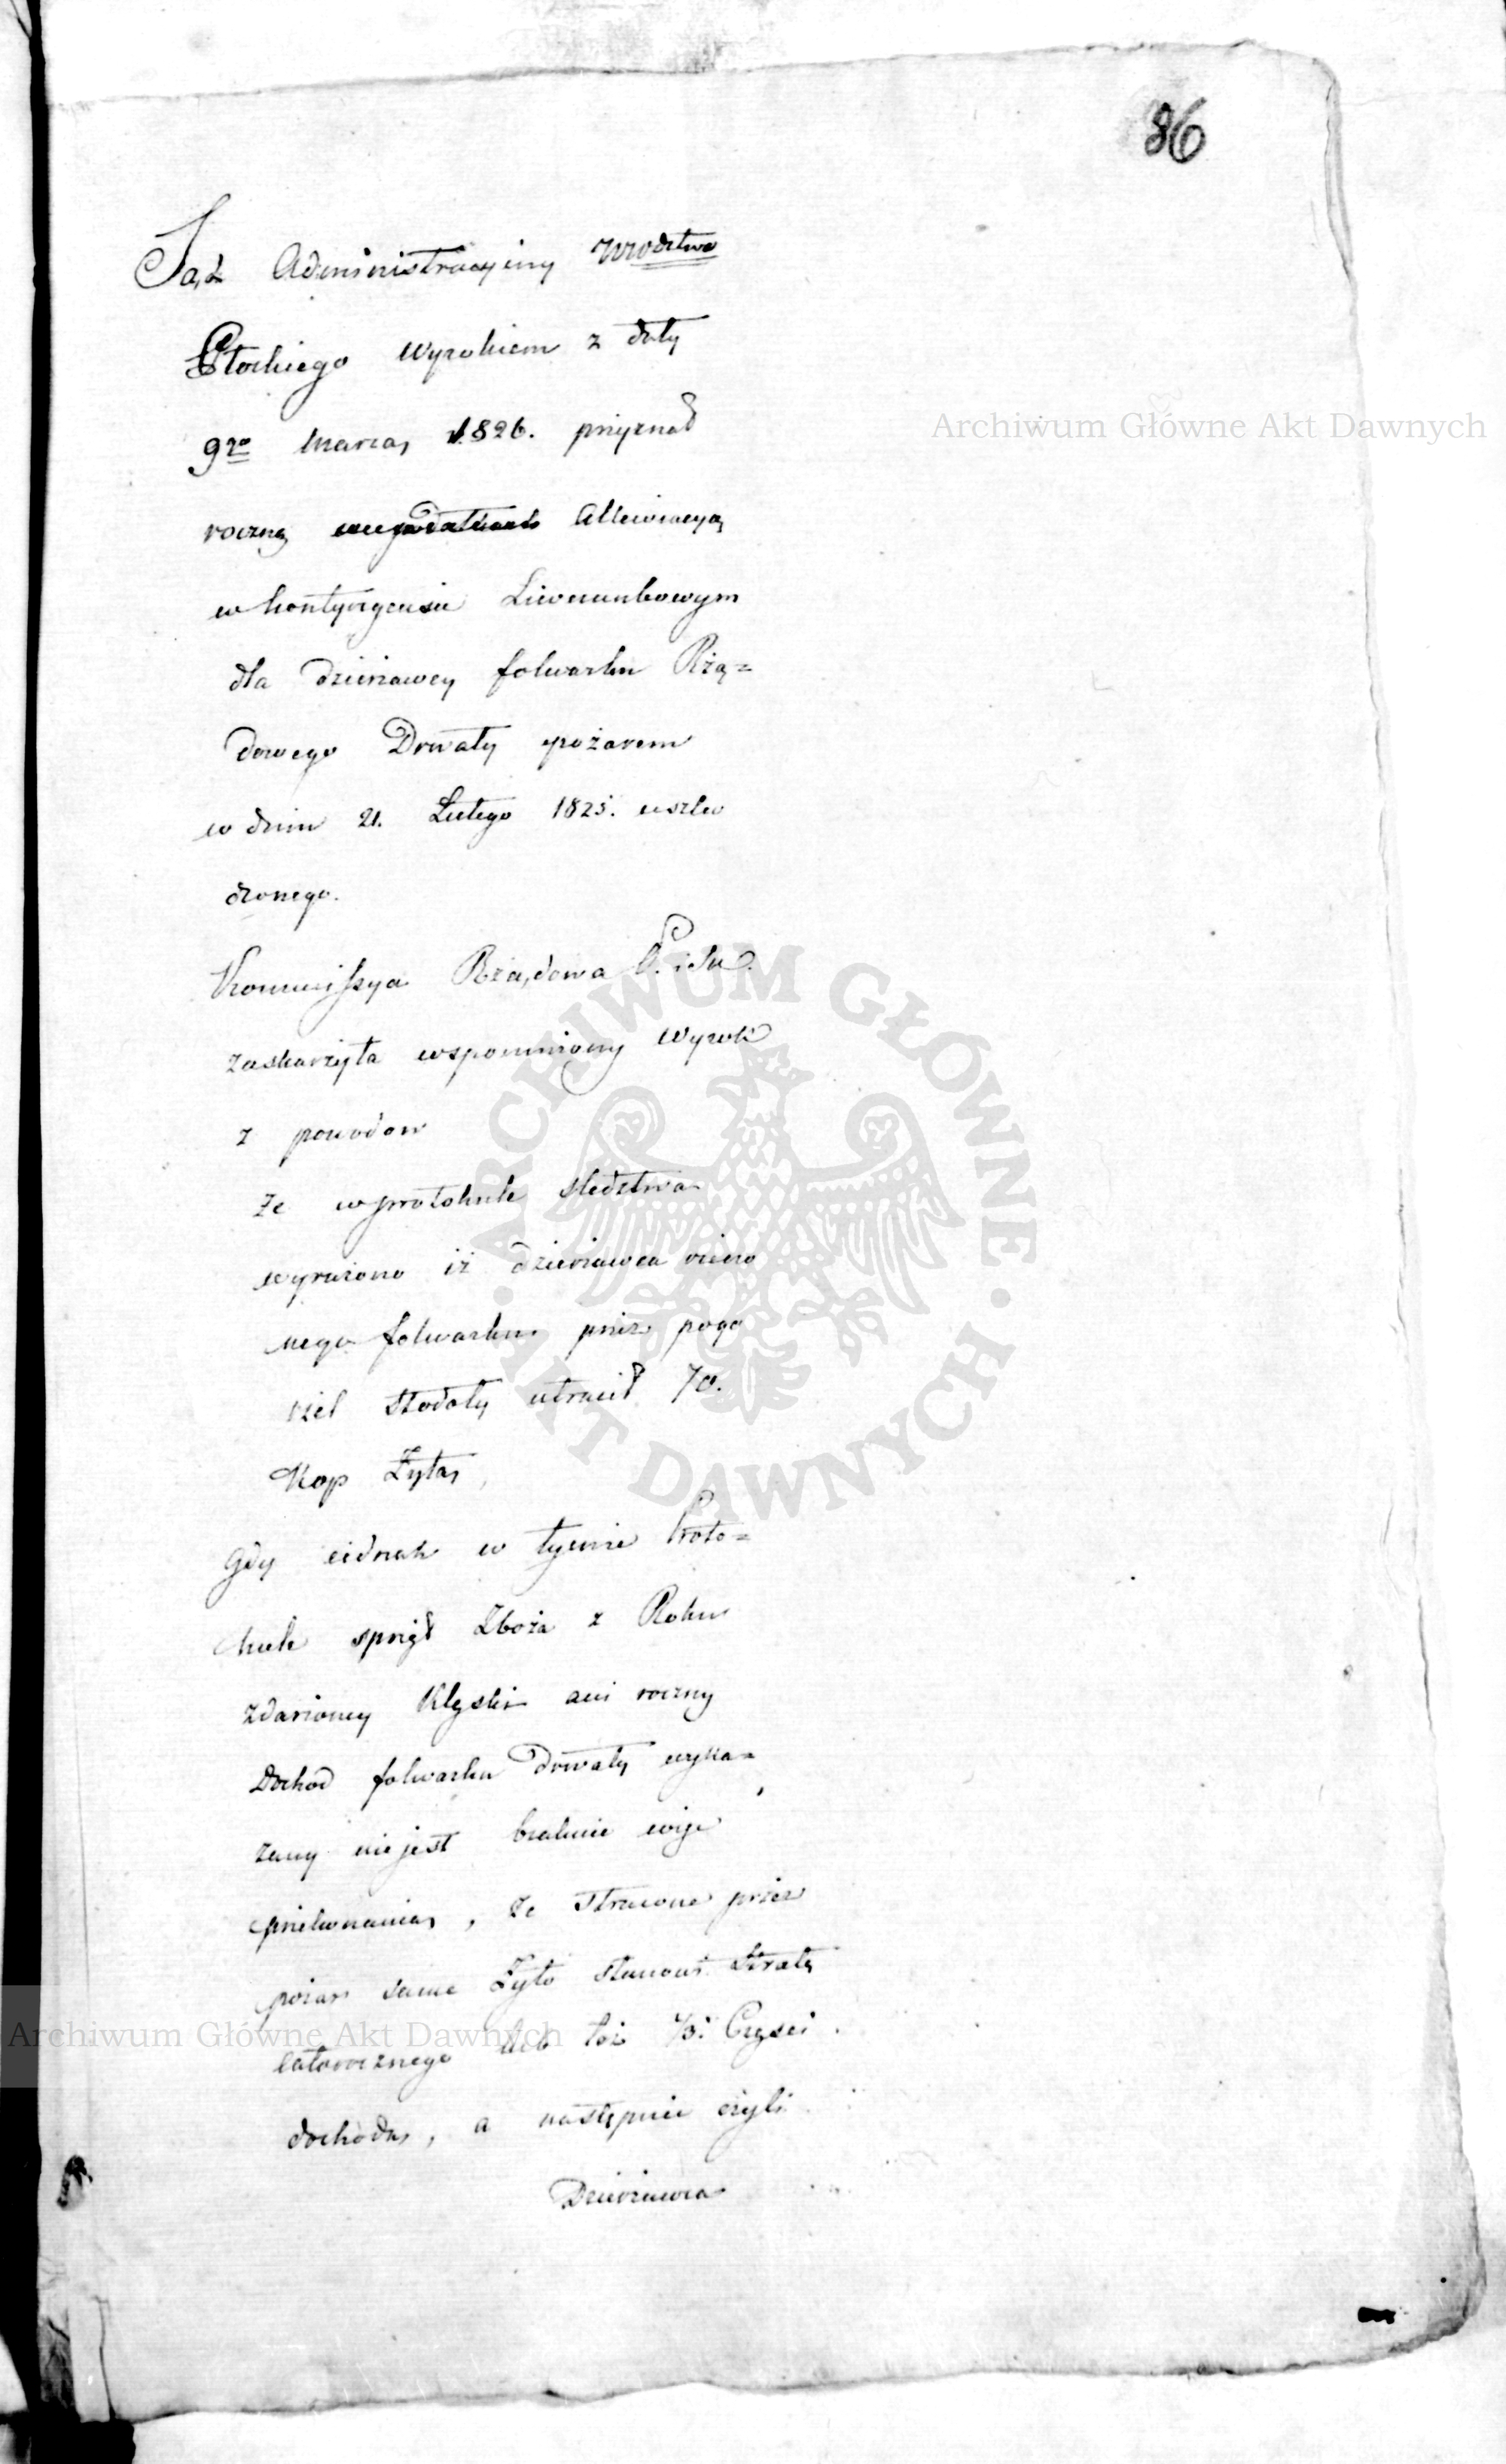 86
Sąd Administracyiny Wwodztwa
Płockiego wyrokiem z daty
9go Marca 1826. przyznał
roczną Allewiacyą
w kontyngensie Liwerunkowym
dla dzierżawcy folwarku Rzą=
dowego Drwały pożarem
w dniu 21. Lutego 1825. uszko
dzonego.
Kommissya Rządowa P. i Sk.
zaskarżyła wspomniony wyrok
z powodow
że w protokule śledztwa
wyrażono iż dzierżawca rzeczo
nego folwarku przez pogo
rzel stodoły utracił 70.
Kop Żyta,
gdy iednak w tymże Proto=
kule sprzęt Zboża z Roku
zdarzoney Klęski ani roczny
dochód folwarku Drwały wyka=
zany nie jest braknie więc
porównania, że stracone przez
pożar same Żyto stanowi stratę
całorocznego lub też 1/3. Części
dochodu, a następnie czyli
Dzierżawca
Archiwum Główne Akt Dawnych
ARCHIWUM GŁÓWNE · AKT DAWNYCH ·
Archiwum Główne Akt Dawnych